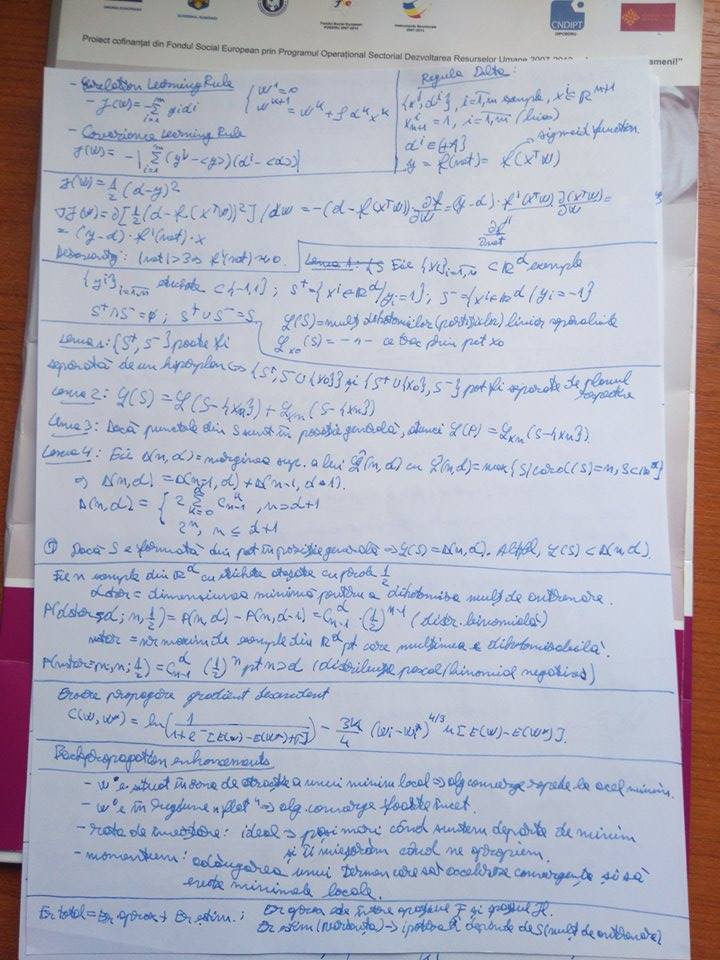 UNIUNEA EUROPEANĂ
GUVERNUL ROMÂNIEI
Fondul Social European
POSDRU 2007-2013
Instrumente Structurale
2007-2013
CNDIPT
OIPOSDRU
Proiect cofinanțat din Fondul Social European prin Programul Operațional Sectorial Dezvoltarea Resurselor Umane 2007-2013
oameni!"
- Correlation Learning Rule
- J(W) = -Σ_{i=1}^{m} yidi { W^1 = 0
W^{k+1} = W^k + ρ d^k x^k
- Covariance Learning Rule
J(W) = -|Σ_{i=1}^{m} (y^i - <y>)(d^i - <d>)|
Regula Delta:
{x^i, d^i}, i=1,m exemple, x^i ∈ R^{n+1}
x^i_{n+1} = 1, i=1,m (bias)
d^i ∈ [-1,1]
sigmoid function
y = f(net) = f(X^T W)
J(W) = 1/2 (d-y)^2
∇J(W) = ∂[1/2 (d - f(X^T W))^2] / dW = -(d - f(X^T W)) · ∂f/∂W = (y-d) · f'(X^T W) ∂(X^T W)/∂W =
∂f/∂net
= (y-d) · f'(net) · x
|net| > 3 ⇒ f'(net) ≈ 0.
Fie {Xi}_{i=1,n} ⊂ R^d exemple
{yi}_{i=1,n} etichete ⊂ {-1,1}; S^+ = {x^i ∈ R^d / yi=1}; S^- = {x^i ∈ R^d / yi=-1}
S^+ ∩ S^- = ∅; S^+ ∪ S^- = S
L(S) = mulț dihotomiilor (partițiilor) liniar separabile
L_{x0}(S) = -"- ce trec prin pct x0
Lema 1: {S^+, S^-} poate fi
separată de un hiperplan ⇔ {S^+, S^- ∪ {x0}} și {S^+ ∪ {x0}, S^-} pot fi separate de planul respectiv
Lema 2: L(S) = L(S-{xn}) + L_{xn}(S-{xn})
Lema 3: Dacă punctele din S sunt în poziție generală, atunci L(P) = L_{xn}(S-{xn}).
Lema 4: Fie D(n,d) = marginea sup. a lui L(n,d) cu L(n,d) = max {S | card(S)=n, S⊂R^d}
⇒ D(n,d) = D(n-1,d) + D(n-1,d-1).
D(n,d) = { 2 Σ_{k=0}^{d} C_{n-1}^{k}, n>d+1
2^n, n ≤ d+1
① Dacă S e formată din pct în poziție generală ⇒ L(S) = D(n,d). Altfel, L(S) < D(n,d).
Fie n exemple din R^d cu etichete atașate cu prob. 1/2
= dimensiunea minimă pentru a dihotomisa mulț de antrenare.
P(dstar=d; n, 1/2) = P(n,d) - P(n,d-1) = C_{n-1}^{d} · (1/2)^{n-1} (distr. binomială)
nstar = nr maxim de exemple din R^d pt care mulțimea e dihotomisabilă.
P(nstar=n, n; 1/2) = C_{n-1}^{d} (1/2)^n pt n>d (distribuție pascal/binomial negativă)
Eroare propagare gradient descendent
C(W, W*) = ln(1/(1+e^{-[E(W)-E(W*)+Γ]})) - 3k/4 (Wi-Wi*)^{4/3} u[E(W)-E(W*)].
Backpropagation enhancements
- W^0 e situat în zona de atracție a unui minim local ⇒ alg converge repede la acel minim.
- W^0 e în regiune "flat" ⇒ alg. converge foarte încet.
- rata de învățare: ideal ⇒ pași mari când suntem departe de minim
și îi micșorăm când ne apropiem.
- momentum: adăugarea unui termen care să accelereze convergența și să
evite minimele locale.
Er total = Er aprox + Er estim.; Er aprox este între spațiul F și spațiul H.
Er estim (varianța) → ipoteza h depinde de S (mulț de antrenare)